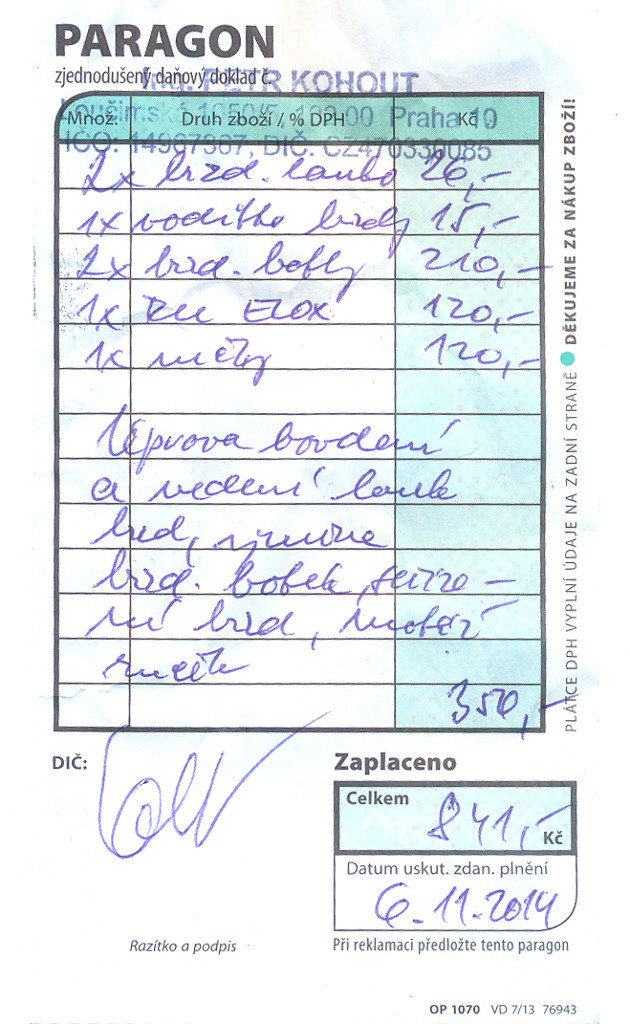 PARAGON
zjednodušený daňový doklad č.
Ing. PETR KOHOUT
Loučimská 1050/5, 100 Praha 10
IČO: 14967367, DIČ: CZ470330085
Množ. Druh zboží / % DPH Kč
2x brzd. lanko 26,-
1x vodítko brzdy 15,-
2x brzd. botky 210,-
1x ELOX 120,-
1x 120,-
Úprava bovdenů
a vedení lanek
brzd, výměna
brzd. botek, seříze-
ní brzd, montáž
350,-
DIČ:
Zaplaceno
Celkem 841,- Kč
Datum uskut. zdan. plnění
6.11.2014
Razítko a podpis
Při reklamaci předložte tento paragon
OP 1070 VD 7/13 76943
PLÁTCE DPH VYPLNÍ ÚDAJE NA ZADNÍ STRANĚ ● DĚKUJEME ZA NÁKUP ZBOŽÍ!